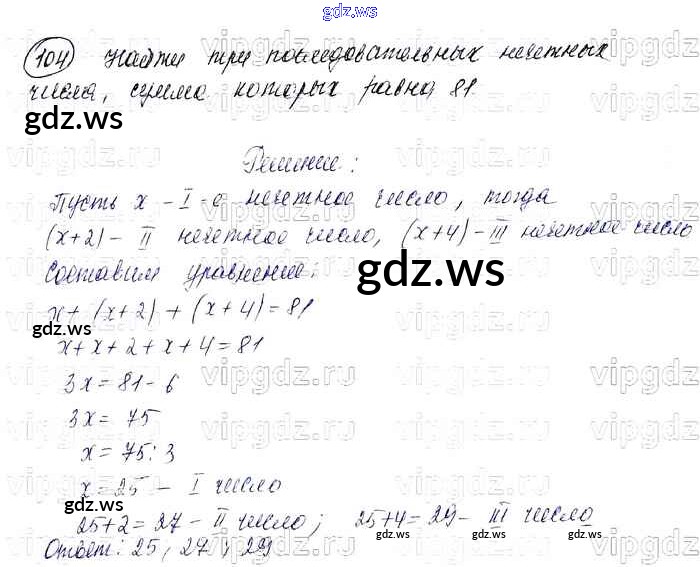 gdz.ws
104 Найти три последовательных нечетных
числа, сумма которых равна 81.
Решение:
Пусть x - I-е нечетное число, тогда
(x+2) - II нечетное число, (x+4) - III нечетное число
Составим уравнение:
x + (x+2) + (x+4) = 81
x+x+2+x+4=81
3x = 81 - 6
3x = 75
x = 75 : 3
x = 25 - I число
25+2 = 27 - II число; 25+4 = 29 - III число
Ответ: 25; 27; 29
gdz.ws
gdz.ws
gdz.ws
gdz.ws
gdz.ws
gdz.ws
gdz.ws
vipgdz.ru